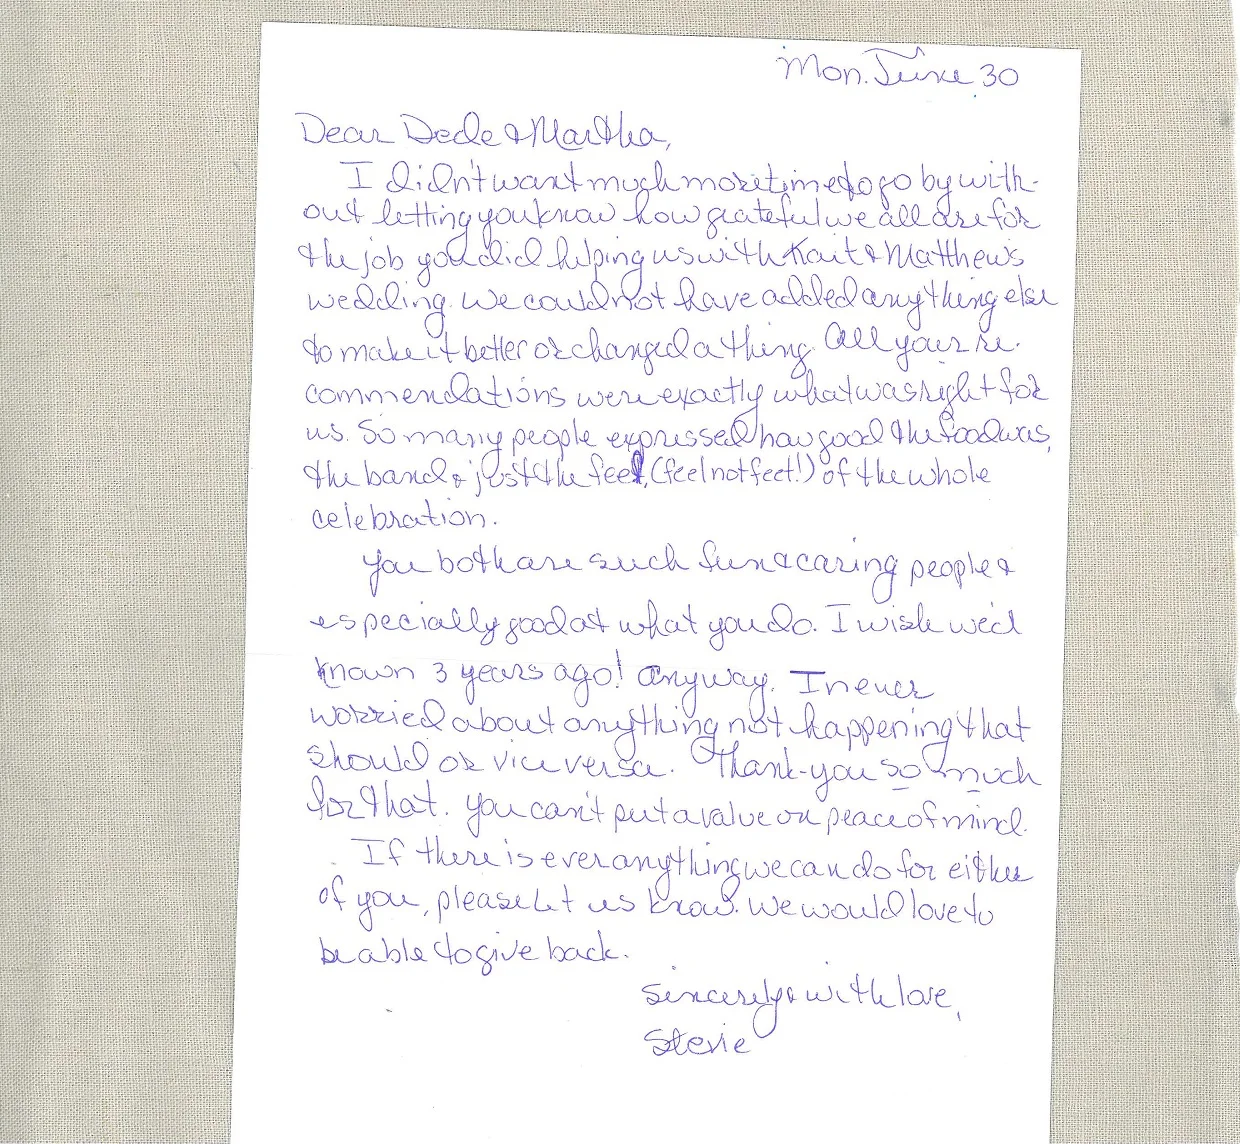 Mon. June 30
Dear Dede & Martha,
I didn't want much more time to go by with-
out letting you know how grateful we all are for
the job you did helping us with Kait & Matthew's
wedding. We could not have added anything else
to make it better or changed a thing. All your re-
commendations were exactly what was right for
us. So many people expressed how good the food was,
the band & just the feel, (feel not feet!) of the whole
celebration.
You both are such fun & caring people &
especially good at what you do. I wish we'd
known 3 years ago! Anyway, I never
worried about anything not happening that
should or vice versa. Thank-you so much
for that. You can't put a value on peace of mind.
If there is ever anything we can do for either
of you, please let us know. We would love to
be able to give back.
Sincerely & with love,
Stevie